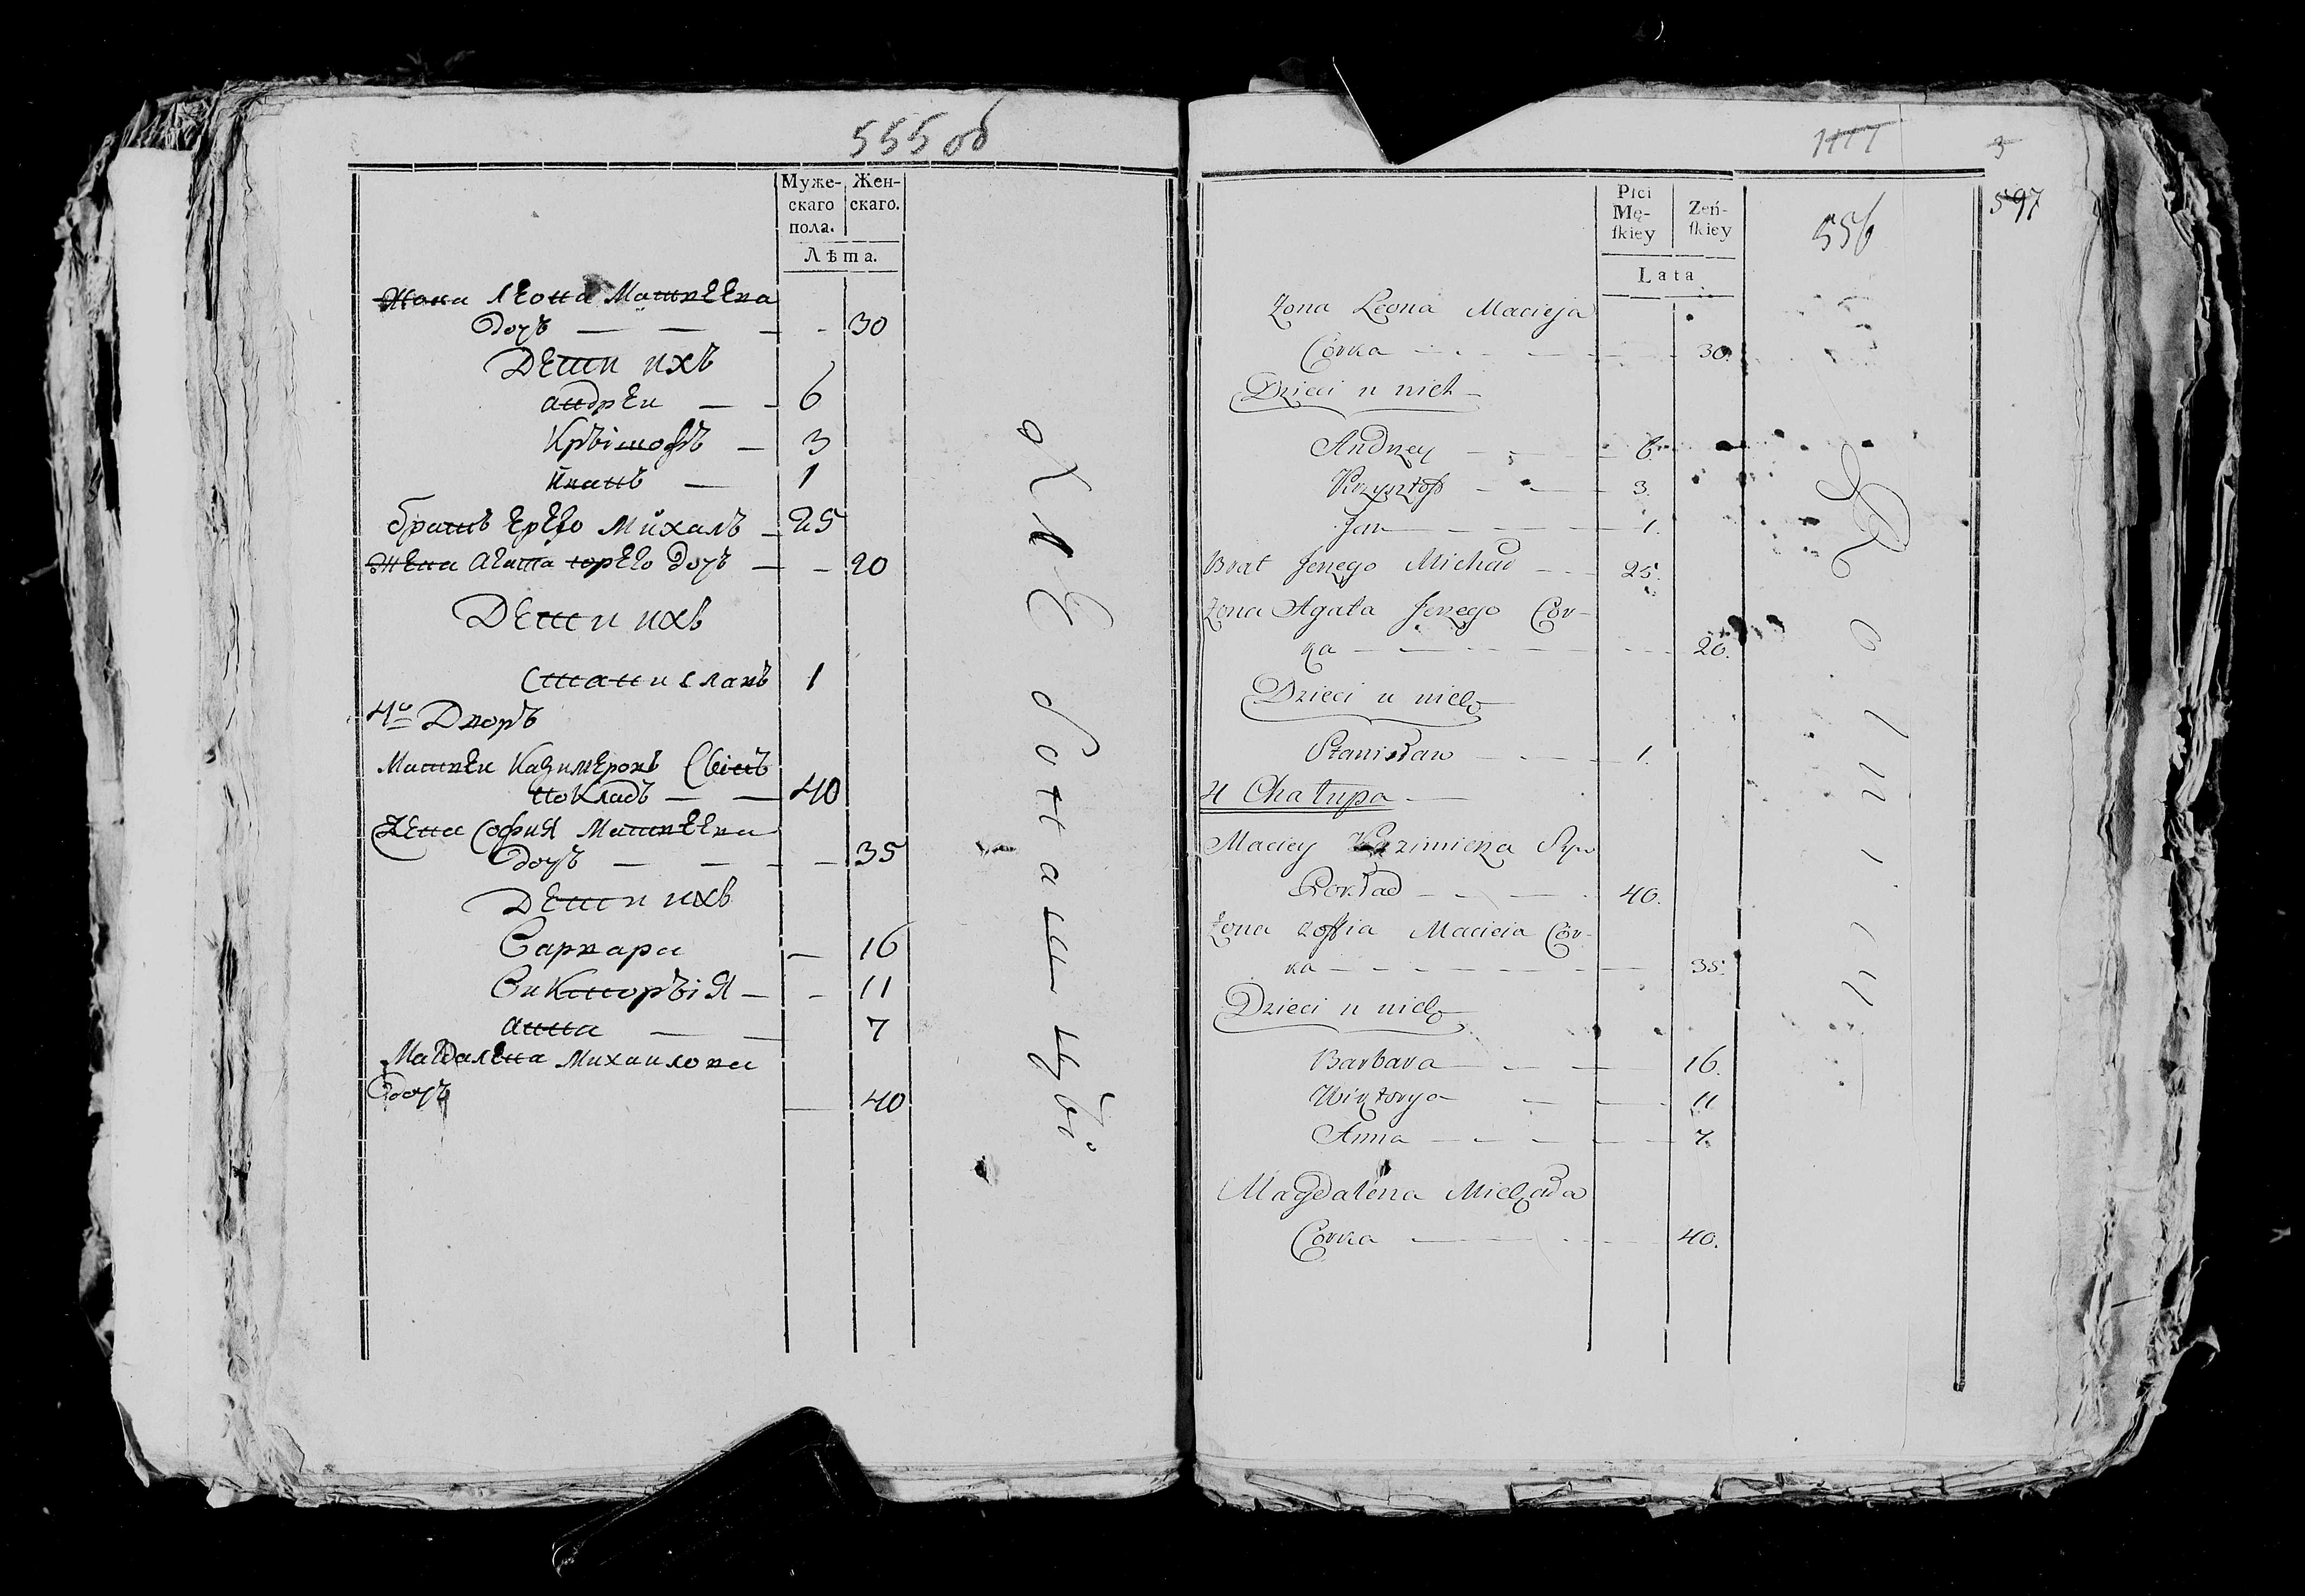 555 об
Муже-
скаго
пола.
Жен-
скаго.
Лѣта.
Жона Леона Матвеева
дочъ — — — 30
Дети ихъ
андреи — — 6
Крыштофъ — 3
Иванъ — 1
братъ Ерего Михалъ — 25
жена Агата юрего дочъ — — 20
Дети ихъ
Станиславъ 1
4й Дворъ
Матвеи Казимеровъ Сынъ
Покладъ — — 40
Жена София Матвеева
дочъ — — — 35
Дети ихъ
Варвара — 16
Викторыя — — 11
анна — — 7
Магдалена Михаилова
дочъ — 40
Płci
Mę-
ſkiey
Zeń-
ſkiey
Lata
556
3
597
Żona Leona Macieja
Córka — — — 30.
Dzieci u nich
Andrzey — — — 6.
Krzysztoff — — 3.
Jan — — — 1.
Brat Jerzego Michał — — 25.
Żona Agata Jerzego Cor-
ka — — — — 20.
Dzieci u nich
Stanisław — — — 1.
4 Chałupa —
Maciey Kazimierza Syn
Pokład — — — 40.
Żona Zoffia Macieia Cór-
ka — — — — — 35.
Dzieci u nich
Barbara — — — 16.
Wiktorya — — — 11
Anna — — — — 7.
Magdalena Michała
Córka — — — 40.